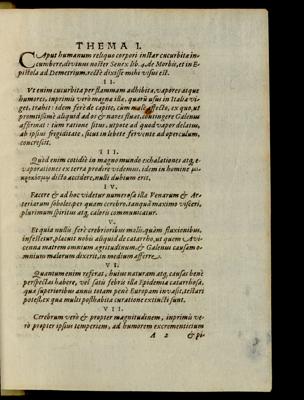 THEMA I.
CAput humanum reliquo corpori instar cucurbitæ in-
cumbere, divinus noster Senex lib. 4. de Morbis, et in E-
pistola ad Demetrium. rectè dixisse mihi visus est.
II.
Vt enim cucurbita per flammam adhibita, vapores atque
humores, inprimis verò magna illa, quarū usus in Italia vi-
get, trahit: idem ferè de capite, cùm malè affecto, ex quo, ut
promtissimè aliquid ad os & nares fluat, contingere Galenus
affirmat: tùm ratione situs, utpote ad quod vapor delatus,
ab ipsius frigiditate, sicut in lebete fervente ad operculum,
concrescit.
III.
Quòd enim cotidiè in magno mundo exhalationes atq, e-
vaporationes ex terra prodire videmus, idem in homine
dicto accidere, nulli dubium erit.
IV.
Facere & ad hoc videtur numerosa illa Venarum & Ar-
teriarum soboles. per quam cerebro, tanquā maximo visceri,
plurimum spiritus atq, caloris communicatur.
V.
Et quia nullis ferè crebrioribus molis, quàm fluxionibus,
infestetur, placuit nobis aliquid de catarrho, ut quem A vi-
cenna matrem omnium agritudinum, & Galenus causam o-
mnium malorum dixerit, in medium afferre.
VI.
Quantum enim referat, huius naturam atq, causas benè
perspectas habere, vel satis febris illa Epidemia catarrhosa,
qua superioribus annis totam penè Europam invasit, testari
potest, ex qua multi posthabita curatione extincti sunt.
VII.
Cerebrum verò & propter magnitudinem, inprimis ve-
rò propter ipsius temperiem, ad humorem excrementicium
A 2 & pi-